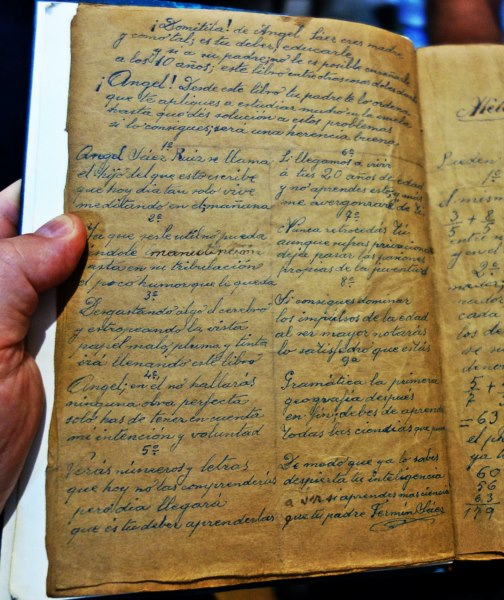 ¡Domitila! de Angel Sáez eres madre
y como tal, es tu deber educarle
y si a su padre no le es posible enseñarle
a los 10 años, este libro entre otras cosas debes darle
¡Angel! Desde este libro tu padre te lo ordena
que te apliques a estudiar mucho en la escuela
hasta que des solución a estos problemas
si lo consigues, sera una herencia buena
1º
Angel Sáez Ruiz se llama
el hijo del que esto escribe
que hoy dia tan solo vive
meditando en el mañana
2º
Ya que serle util no pueda
dandole manutención
gasta en su tribulación
el poco humor que le queda
3º
Desgastando algo el cerebro
y estropeando la vista
papel malo, pluma y tinta
irá llenando este libro
4º
Angel; en el no hallaras
ninguna obra perfecta
solo has de tener en cuenta
mi intención y voluntad
5º
Verás números y letras
que hoy no las comprenderás
pero dia llegará
que és tu deber aprenderlas
6º
Si llegamos a vivir
a tus 20 años de edad
y no aprendes esto y más
me avergonzaré de ti
7º
Nunca retrocedas tú
aunque sufras privaciones
deja pasar las pasiones
propias de la juventud
8º
Si consigues dominar
los impulsos de la edad
al ser mayor notarás
lo satisfecho que estás
9ª
Gramática la primera
geografia después
en fin, debes de aprender
todas las ciencias que
De modo que ya lo sabes
despierta tu inteligencia
a ver si aprendes mas ciencia
que tu padre Fermin Sáez
Pueden
1º
El mismo
3/5 + 8/5
entre
y en el
2º
cada
los de
denom
5
= 63
el p
ya
60
56
63
179